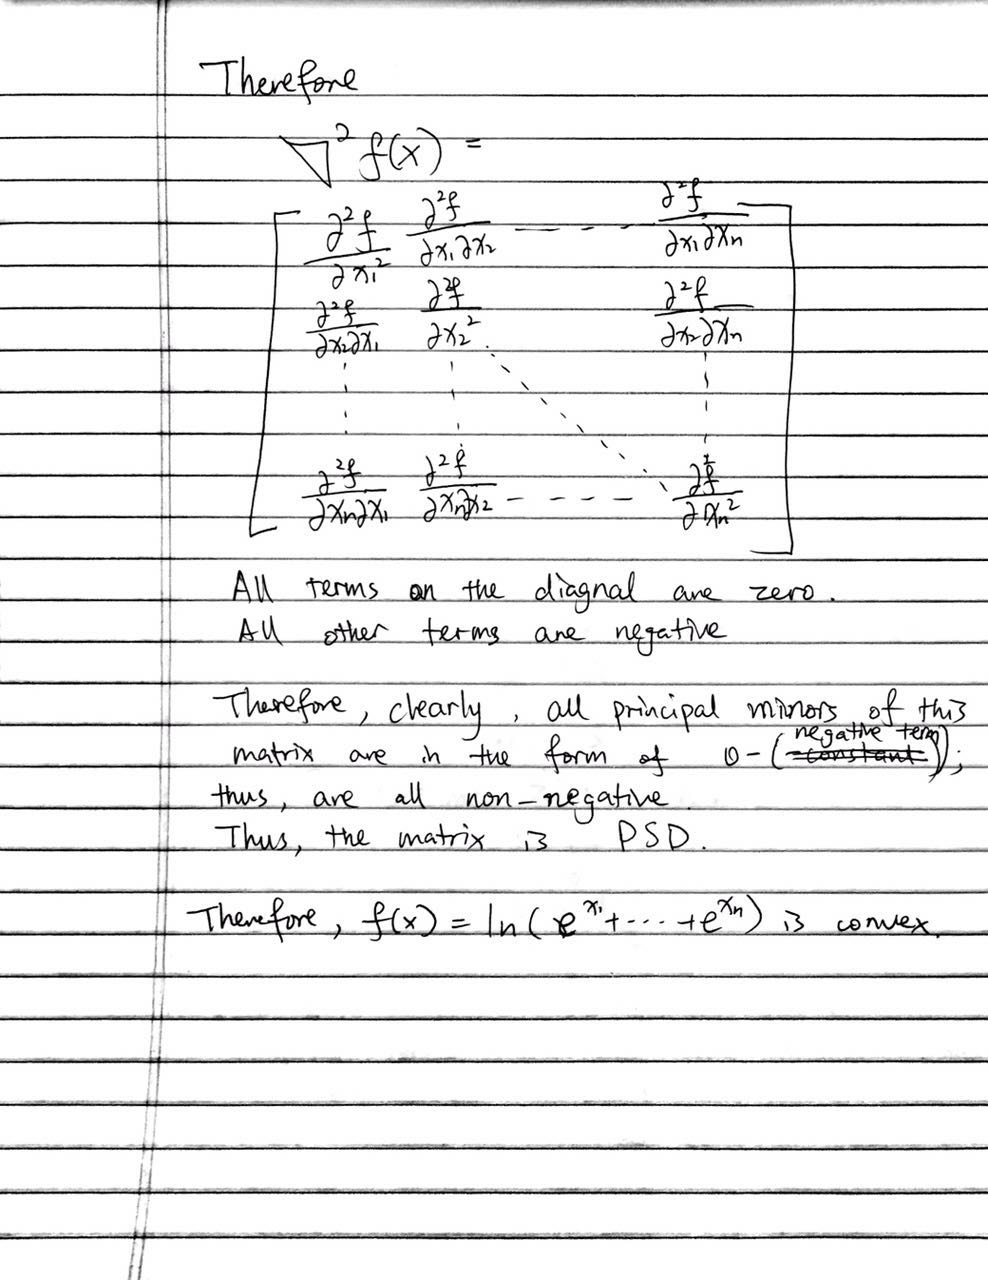 Therefore
∇² f(x) =
∂²f/∂x₁² ∂²f/∂x₁∂x₂ - - - - ∂²f/∂x₁∂xₙ
∂²f/∂x₂∂x₁ ∂²f/∂x₂² ∂²f/∂x₂∂xₙ
∂²f/∂xₙ∂x₁ ∂²f/∂xₙ∂x₂ - - - - ∂²f/∂xₙ²
All terms on the diagnal are zero.
All other terms are negative
Therefore, clearly, all principal minors of this
matrix are in the form of 0-(negative term);
thus, are all non-negative.
Thus, the matrix is PSD.
Therefore, f(x) = ln(e^x₁+····+e^xₙ) is convex.